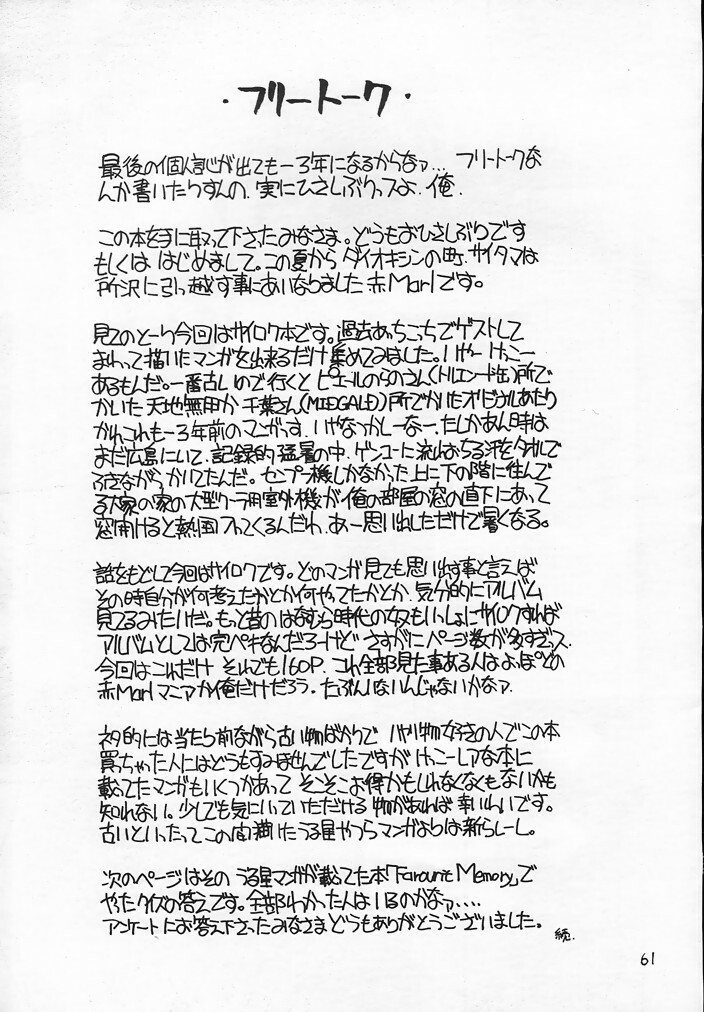 ・フリートーク・
最後の個人誌が出てもー3年になるからなァ… フリートークな
んか書いたりすんの、実にひさしぶりっスよ、俺、
この本を手に取って下さったみなさま。どうもおひさしぶりです
もしくは はじめまして。この夏から ダイオキシンの町、サイタマは
所沢に引っ越す事にあいなりました 赤Marlです。
見てのとーり今回はサイロク本です。過去あっちこっちでゲストして
まわって描いたマンガを出来るだけ集めてみました。いやー けっこー
あるもんだ。一番古いので行くと ピエールのらのさん(トルエンドー缶)所で
かいた 天地無用か 千葉さん(MIDGALD)所でかいたオリジナルあたり
かな これも もー3年前のマンガっす。いやなつっかしーなー。たしかあん時は
まだ広島にいて、記録的猛暑の中、ゲンコーに流れおちる汗をタオルで
ふきながら かいてたんだ。センプー機しかなかった上に下の階に住んで
る大家の家の大型クーラー用室外機が俺の部屋の窓の直下にあって
窓開けると熱風入ってくるんだわ、あー思い出しただけで暑くなる。
話をもどして今回はサイロクです。どのマンガ見ても思い出す事と言えば
その時自分が何考えたかとか何やってたかとか、気分的にアルバム
見てるみたいだ。もっと昔の はなむら時代の奴もいっしょにサイロクすれば
アルバムとしては完ペキなんだろーけど さすがにページ数が多すぎっス
今回はこれだけ それでも160P. これ全部見た事ある人はよっぽどの
赤Marlマニアか俺だけだろう。たぶんいないんじゃないかなァ
ネタ的には当たり前ながら古い物ばかりで ハヤリ物好きの人でこの本
買っちゃった人にはどうもすみませんでしたですが けっこーレアな本に
載ってたマンガもいくつかあって そこそこお得かもしれなくなくもないかも
知れない。少しでも気にいっていただける物があれば 幸いです。
古いといったって この間描いた うる星やつらマンガよりは新らしーし。
次のページはその うる星マンガが載ってた本「Favourite Memory」で
やったクイズの答えです。全部わかった人はいるのかなァ‥‥
アンケートにお答え下さったみなさま どうもありがとうございました。
続.
61